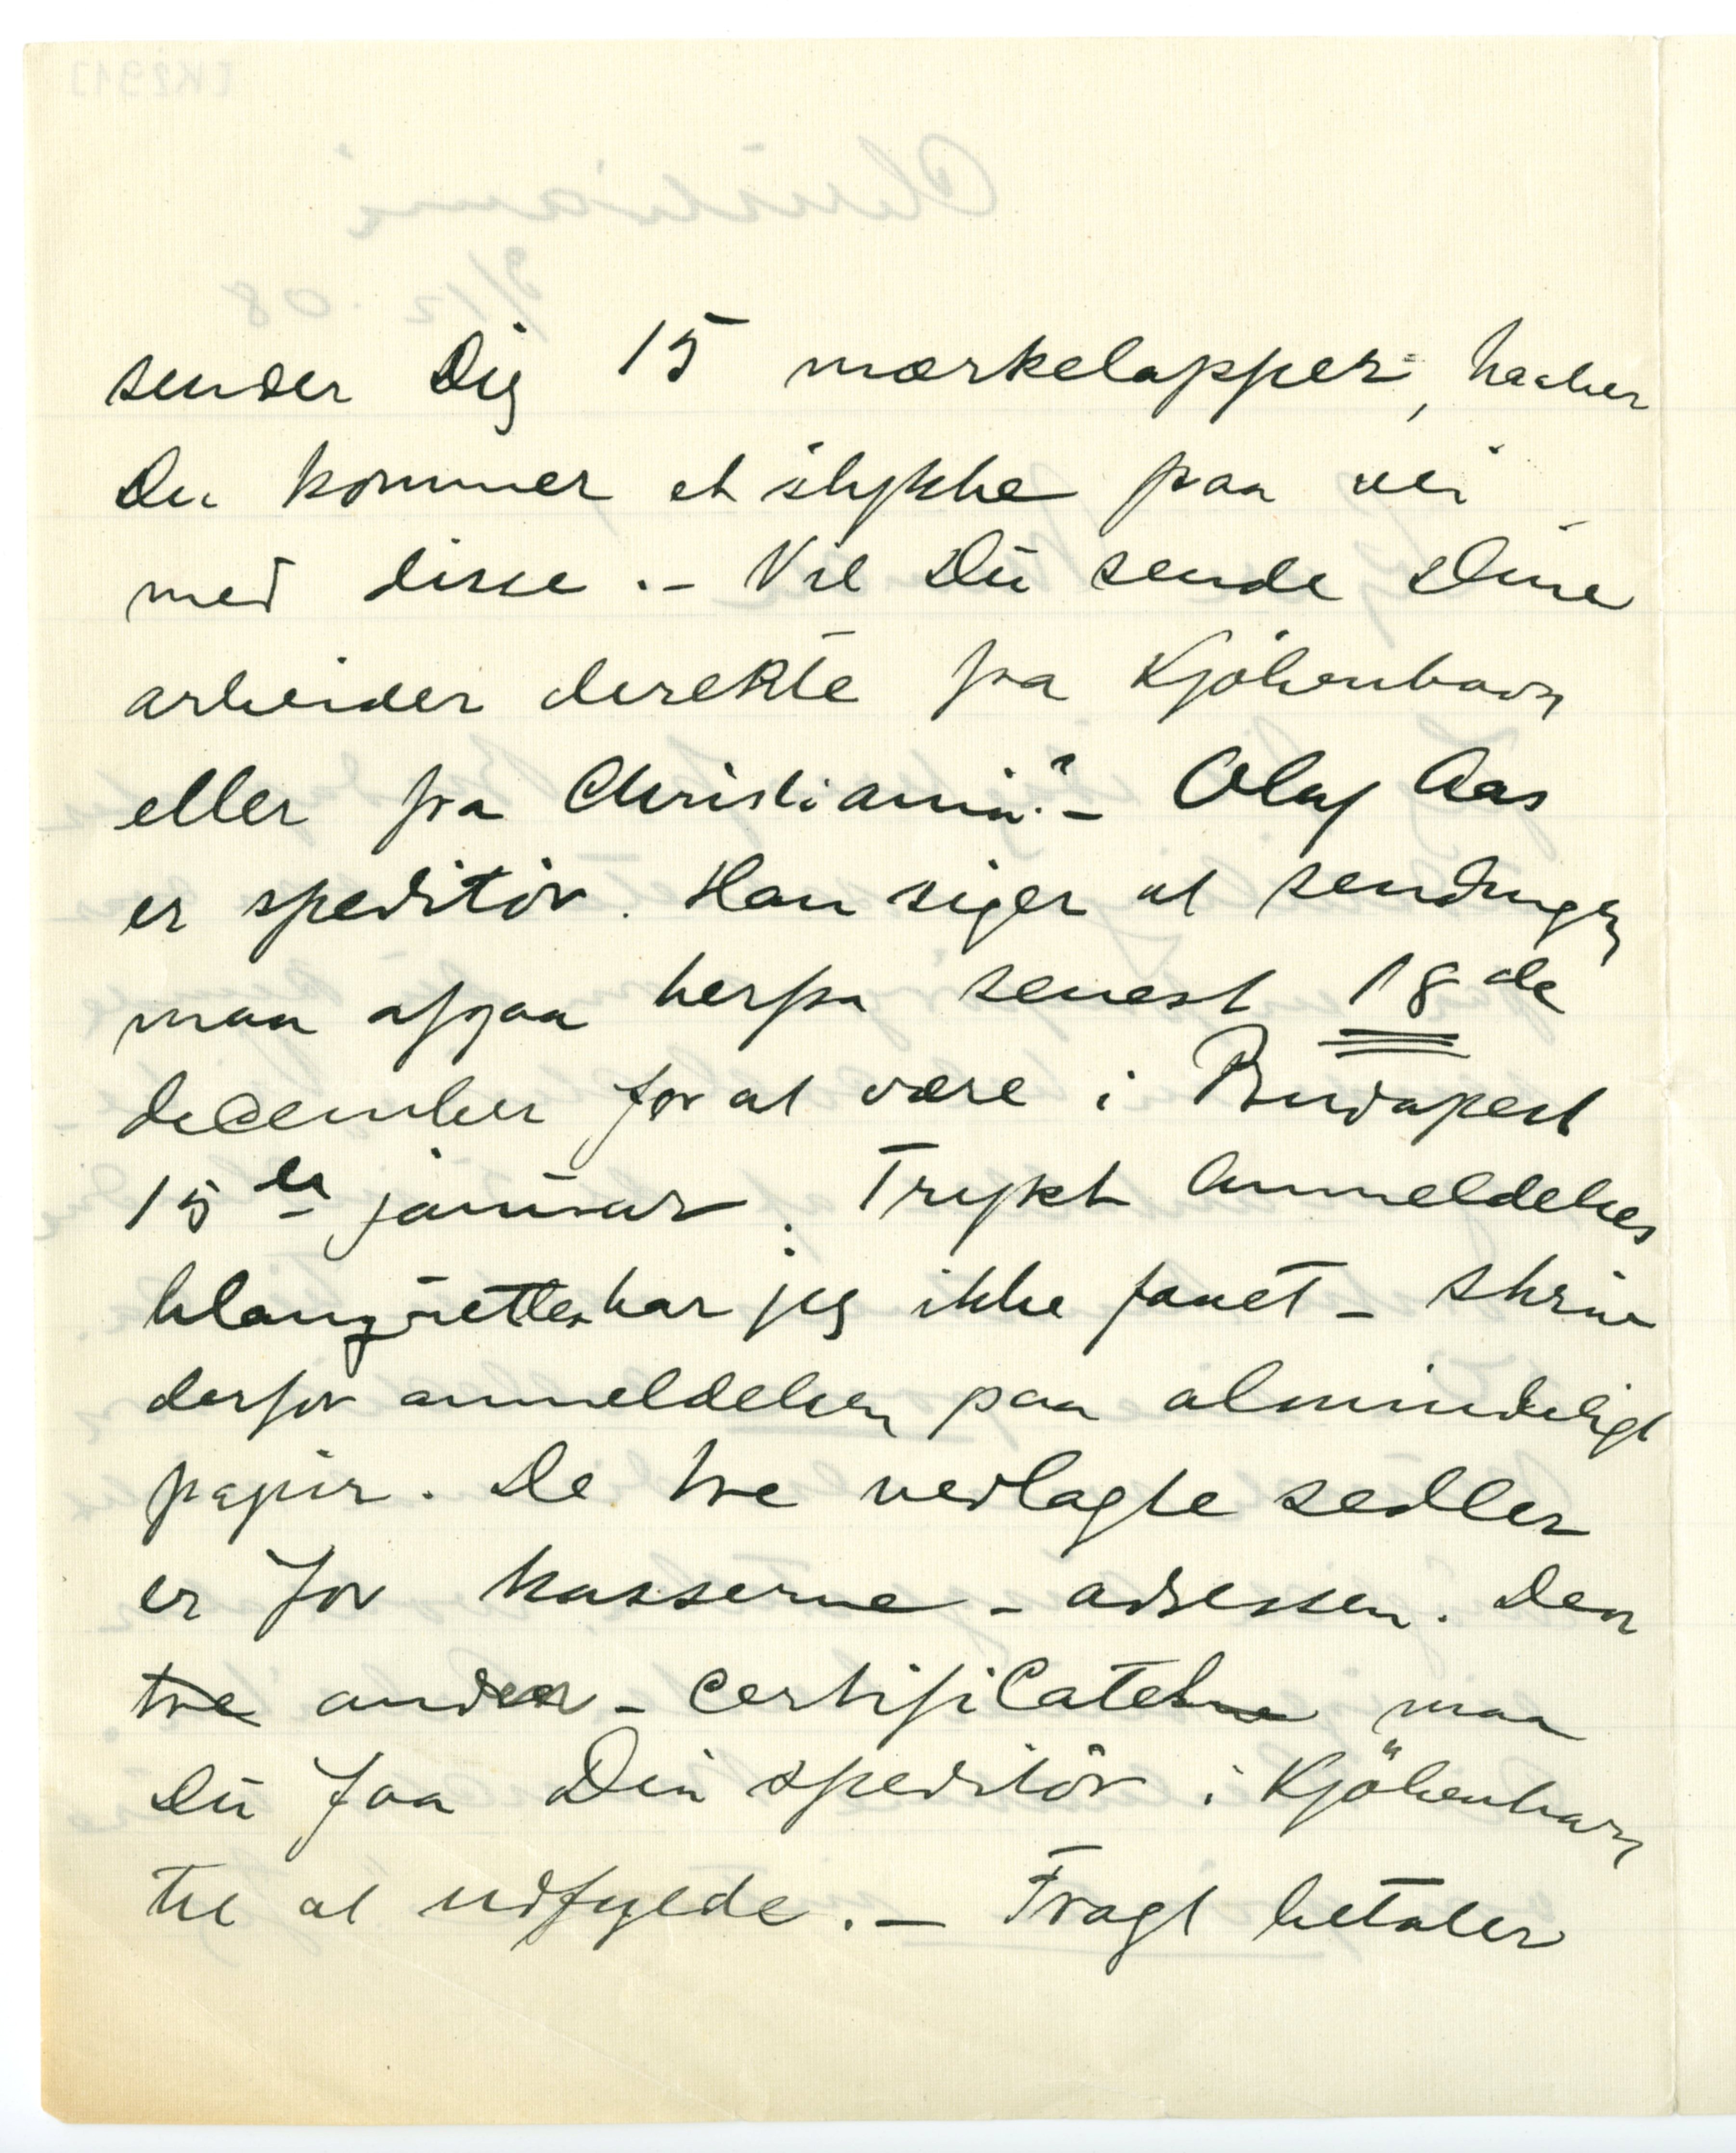 sender Dig 15 mærkelapper, haaber
Du kommer et stykke paa vei
med disse. – Vil Du sende Dine
arbeider direkte fra Kjöbenhavn
eller fra Christiania? – Olaf Aas
er speditör. Han siger at sendingen
maa afgaa herfra senest 18de
december for at være i Budapest
15de januar. Trykt Anmeldelses
blanquetter har jeg ikke faaet – skriv
derfor anmeldelsen paa almindeligt
papir. De tre vedlagte sedler
er for kasserne – adressen. Den
tre anden – Certificaterne maa
Du faa Din speditör i Kjöbenhavn
til at udfylde. – Fragt betaler